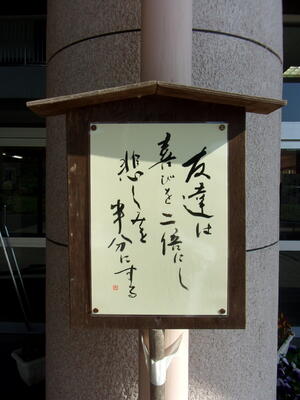 友達は
喜びを二倍にし
悲しみを
半分にする